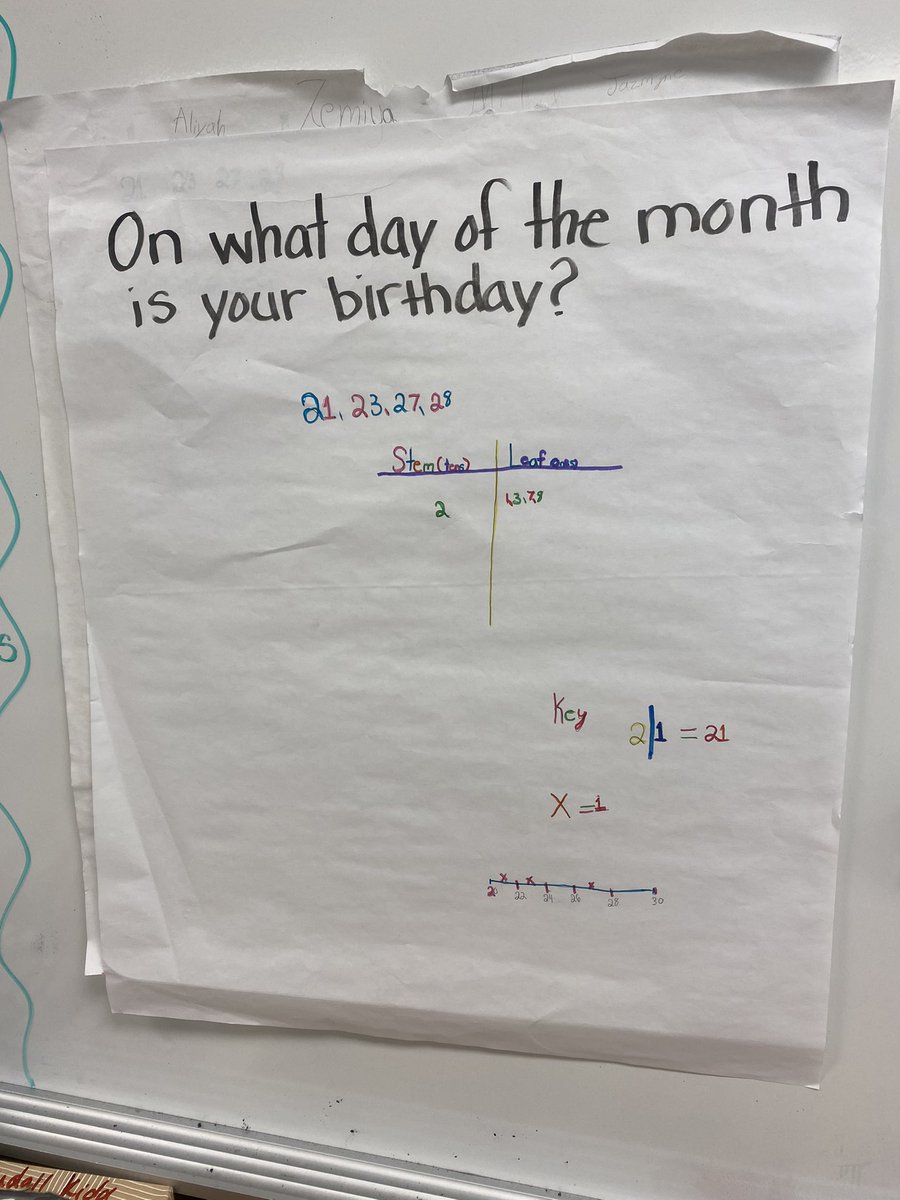 Aliyah Zemiya Jazmyne
21 23 27 28
On what day of the month
is your birthday?
21, 23, 27, 28
Stem (tens) Leaf ones
2 1,3,7,8
Key 2|1 = 21
X = 1
x x x
20 22 24 26 28 30
S
Kida